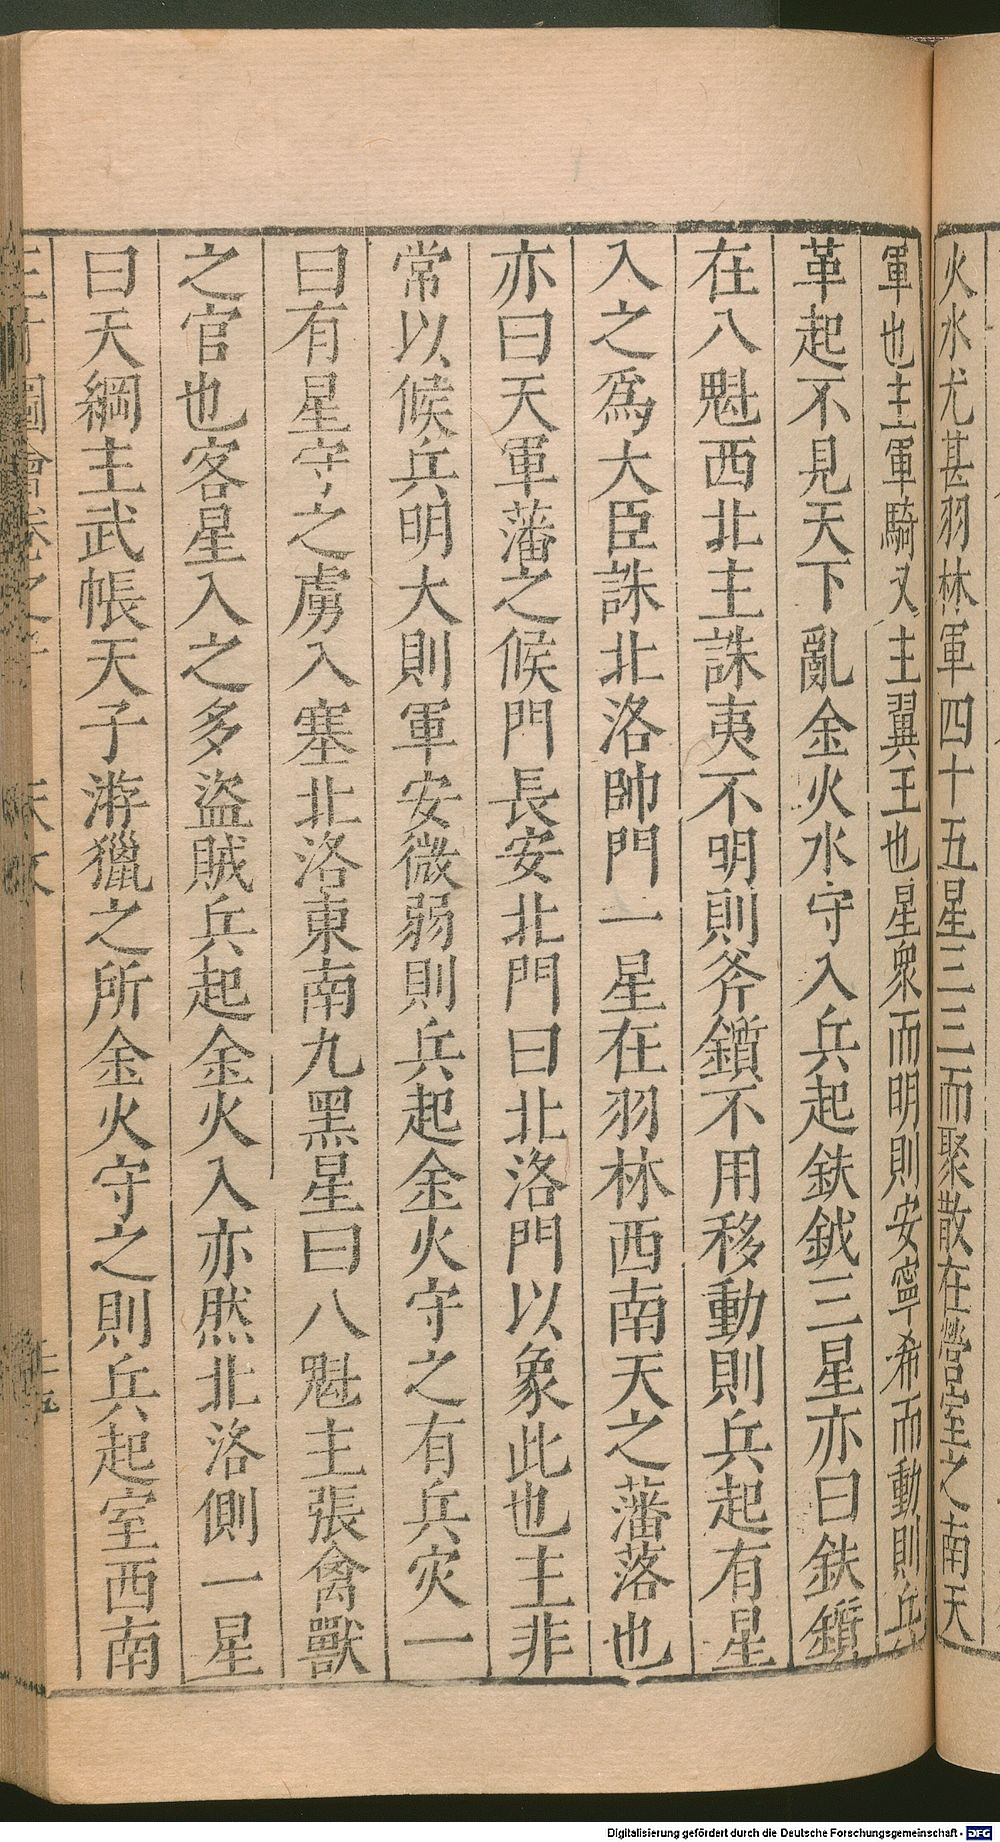 火水尤甚羽林軍四十五星三三而聚散在營室之南天
軍也主軍騎又主翼王也星衆而明則安寧希而動則兵
革起不見天下亂金火水守入兵起鈇鉞三星亦曰鈇鑕
在八魁西北主誅夷不明則斧鑕不用移動則兵起有星
入之爲大臣誅北洛帥門一星在羽林西南天之藩落也
亦曰天軍藩之候門長安北門曰北洛門以象此也主非
常以候兵明大則軍安微弱則兵起金火守之有兵灾一
曰有星守之虜入塞北洛東南九黑星曰八魁主張禽獸
之官也客星入之多盜賊兵起金火入亦然北洛側一星
曰天綱主武帳天子游獵之所金火守之則兵起室西南
圖會卷之
天文
Digitalisierung gefördert durch die Deutsche Forschungsgemeinschaft - DFG